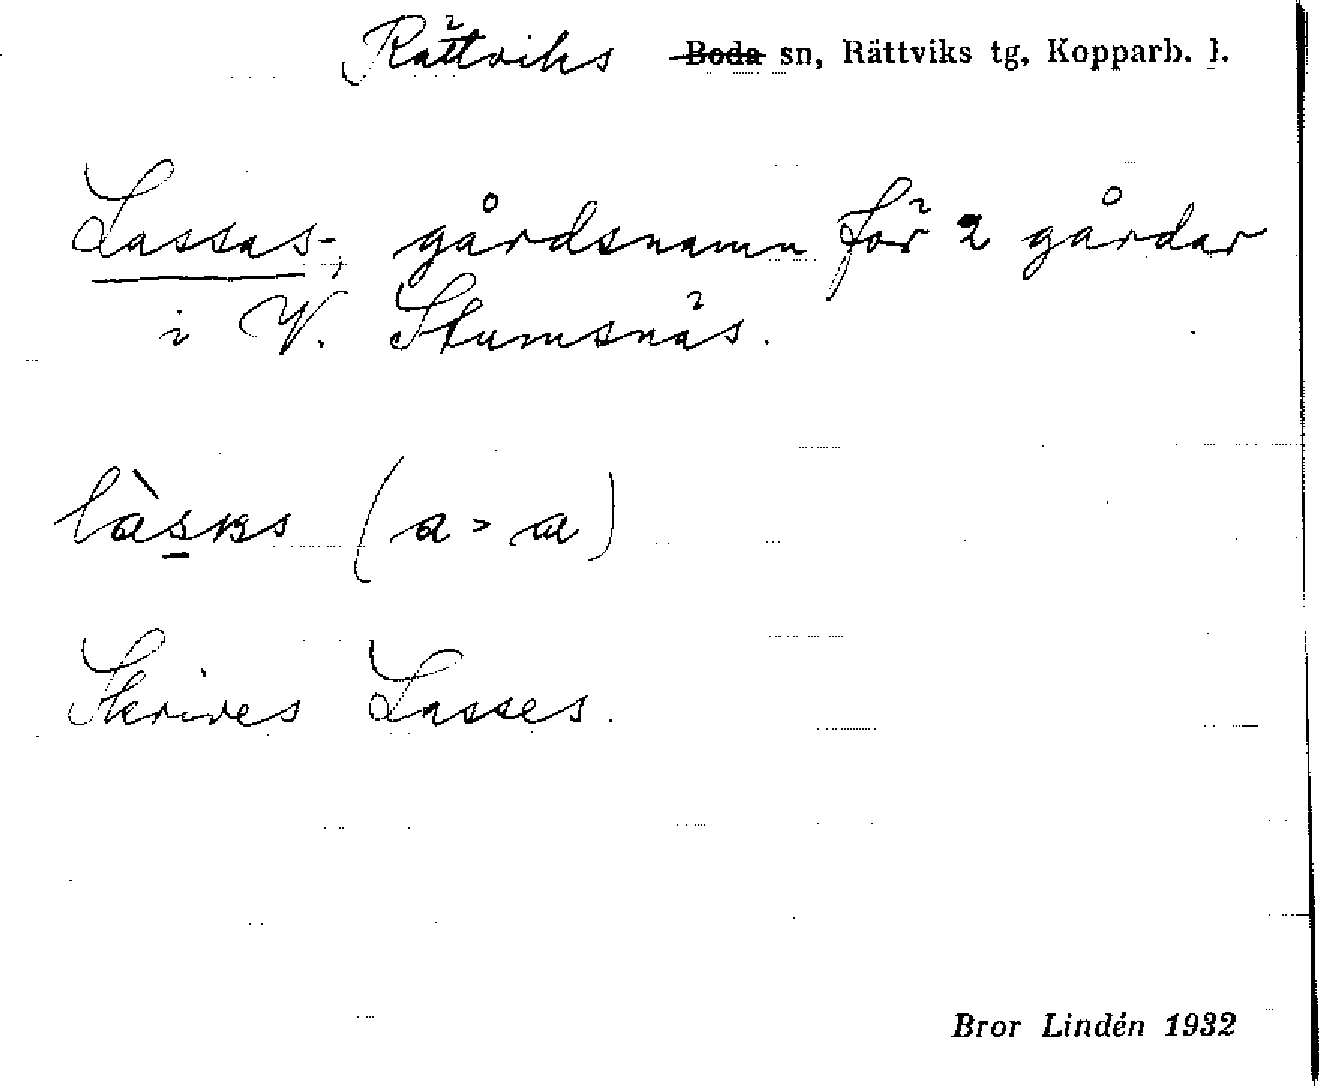 Rättviks ~~Boda~~ sn, Rättviks tg, Kopparb. l.
Lassas-, gårdsnamn för 2 gårdar
i V. Stumsnäs.
(a > a)
Skrives Lasses.
Bror Lindén 1932